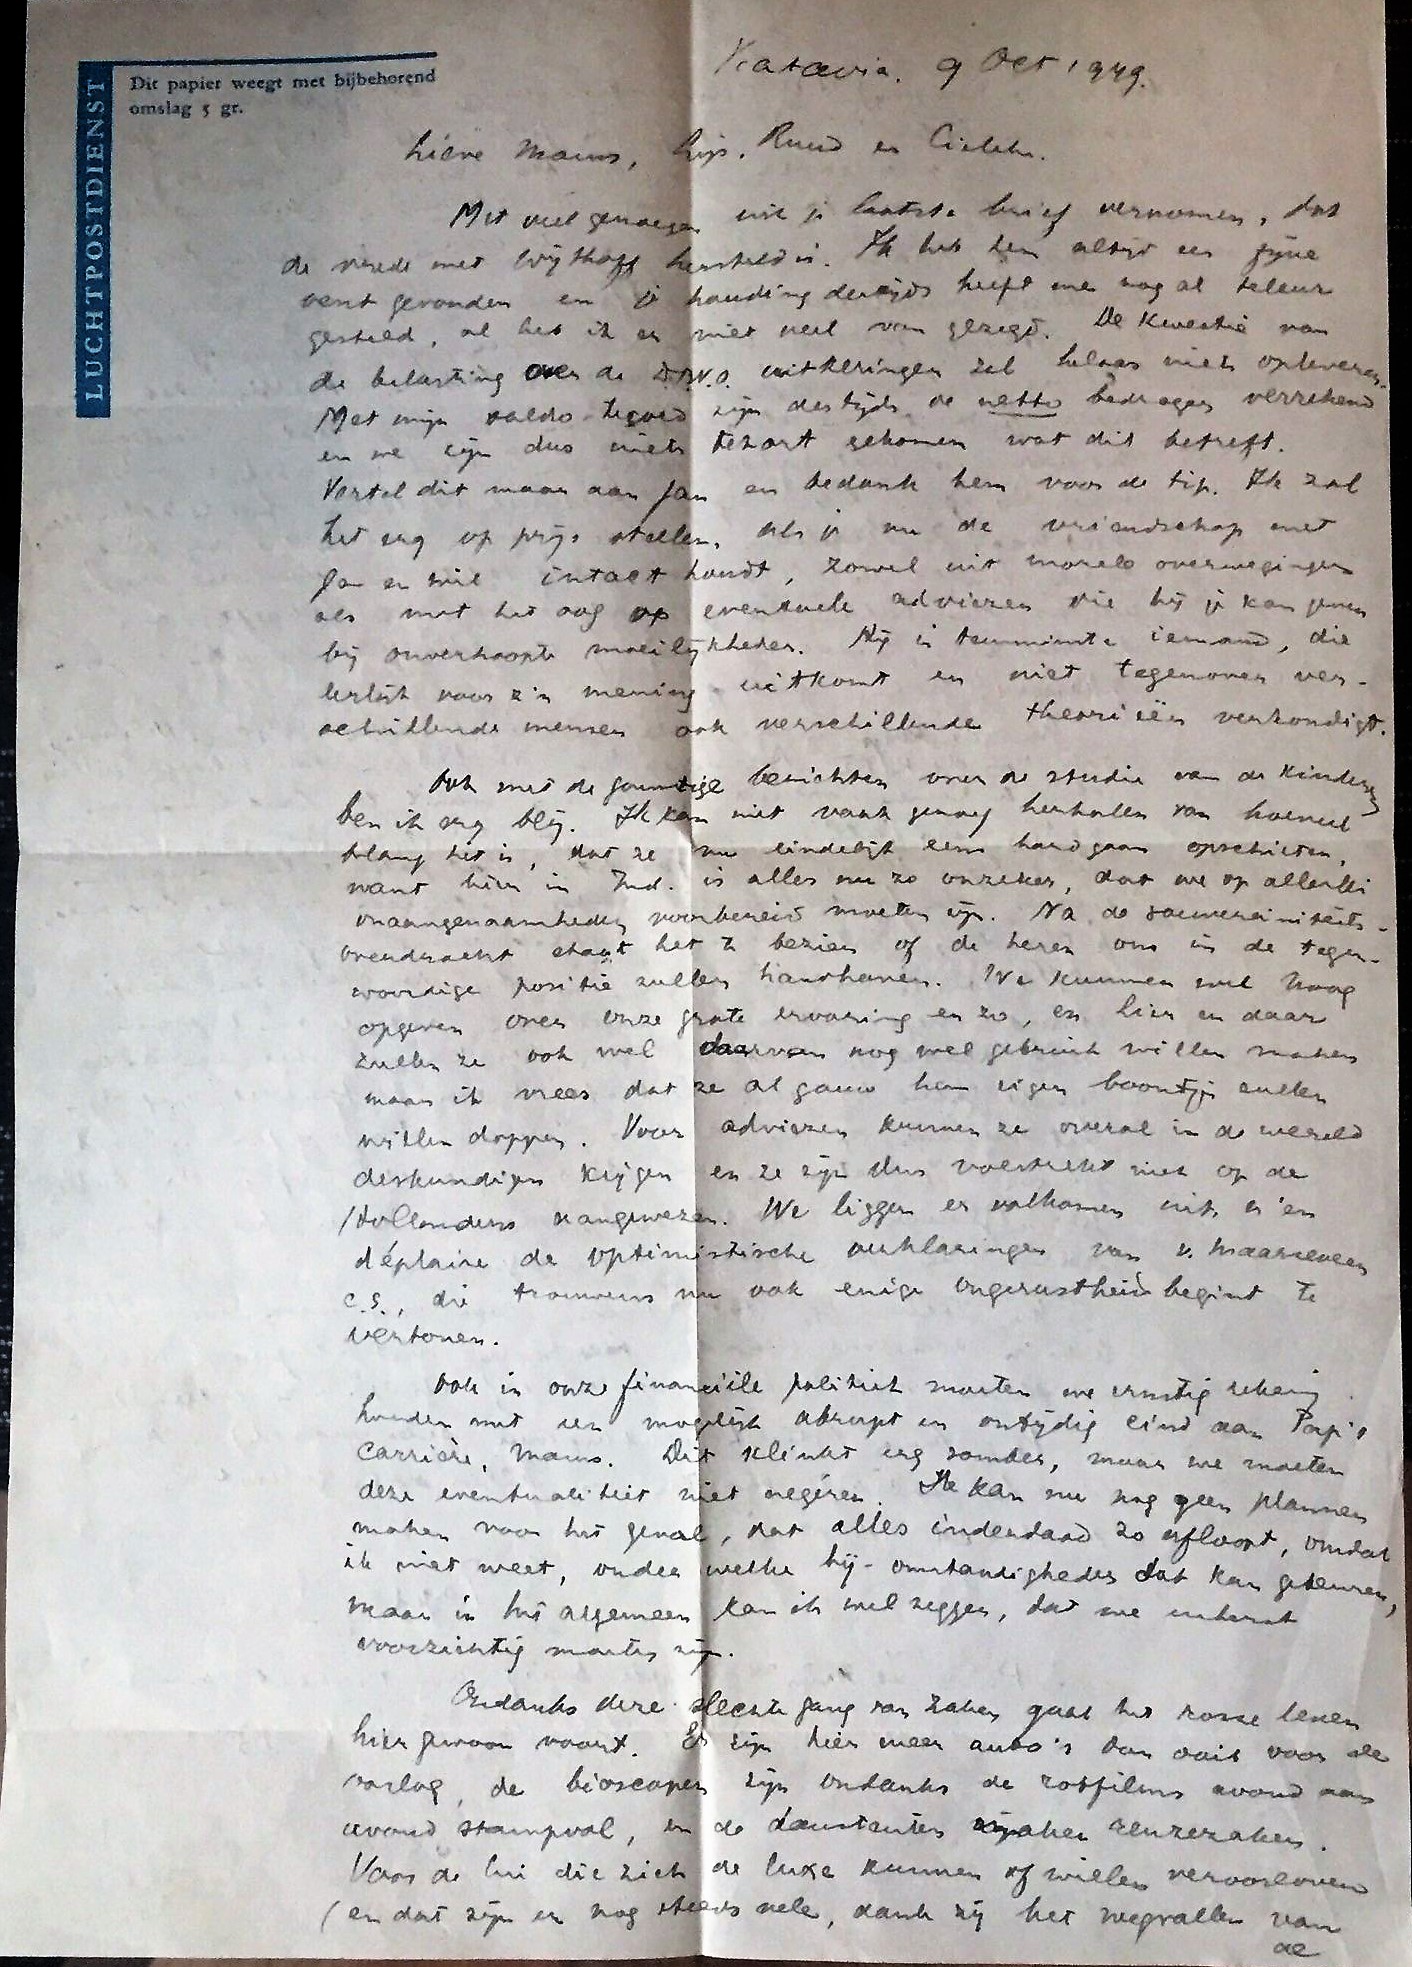 LUCHTPOSTDIENST
Dit papier weegt met bijbehorend
omslag 5 gr.
Batavia. 9 Oct 1949.
Lieve Mams, Ruud en
Met veel genoegen uit je laatste brief vernomen, dat
de vrede met Wijthoff hersteld is. Ik heb hem altijd een fijne
vent gevonden en je houding destijds heeft me nog al teleur
gesteld, al heb ik er niet veel van gezegd. De kwestie van
de belasting over de uitkeringen zal helaas niets opleveren.
Met mijn saldo-tegoed zijn destijds de netto bedragen verrekend
en we zijn dus niets tekort gekomen wat dit betreft.
Vertel dit maar aan Jan en bedank hem voor de tip. Ik zal
het erg op prijs stellen, als je nu de vriendschap met
Jan en Wil intact houdt, zowel uit morele overwegingen
als met het oog op eventuele adviezen die hij je kan geven
bij onverhoopte moeilijkheden. Hij is tenminste iemand, die
eerlijk voor z'n mening uitkomt en niet tegenover ver-
schillende mensen ook verschillende theorieën verkondigt.
Ook met de gunstige berichten over de studie van de kinderen
ben ik erg blij. Ik kan niet vaak genoeg herhalen van hoeveel
belang het is, dat ze nu eindelijk eens hard gaan opschieten,
want hier in Ind. is alles nu zo onzeker, dat we op allerlei
onaangenaamheden voorbereid moeten zijn. Na de souvereiniteits-
overdracht staat het te bezien of de heren ons in de tegen-
woordige positie zullen handhaven. We kunnen wel hoog
opgeven over onze grote ervaring en zo, en hier en daar
zullen ze ook wel daarvan nog wel gebruik willen maken
maar ik vrees dat ze al gauw hun eigen boontjes zullen
willen doppen. Voor adviezen kunnen ze overal in de wereld
deskundigen krijgen en ze zijn dus volstrekt niet op de
Hollanders aangewezen. We liggen er volkomen uit, n'en
déplaise de optimistische verklaringen van v. Maarseveen
c.s., die trouwens nu ook enige ongerustheid begint te
vertonen.
Ook in onze financiële politiek moeten we ernstig rekening
houden met een mogelijk abrupt en ontijdig eind aan Pap's
carrière, Mams. Dit klinkt erg somber, maar we moeten
deze eventualiteit niet negéren. Ik kan nu nog geen plannen
maken voor het geval, dat alles inderdaad zo afloopt, omdat
ik niet weet, onder welke bij-omstandigheden dat kan gebeuren,
maar in het algemeen kan ik wel zeggen, dat we uiterst
voorzichtig moeten zijn.
Ondanks deze slechte gang van zaken gaat het rosse leven
hier gewoon voort. Er zijn hier meer auto's dan ooit voor de
oorlog, de bioscopen zijn ondanks de rotfilms avond aan
avond stampvol, en de danstenten maken reuzezaken.
Voor de lui die zich de luxe kunnen of willen veroorloven
(en dat zijn er nog steeds vele, dank zij het wegvallen van
de